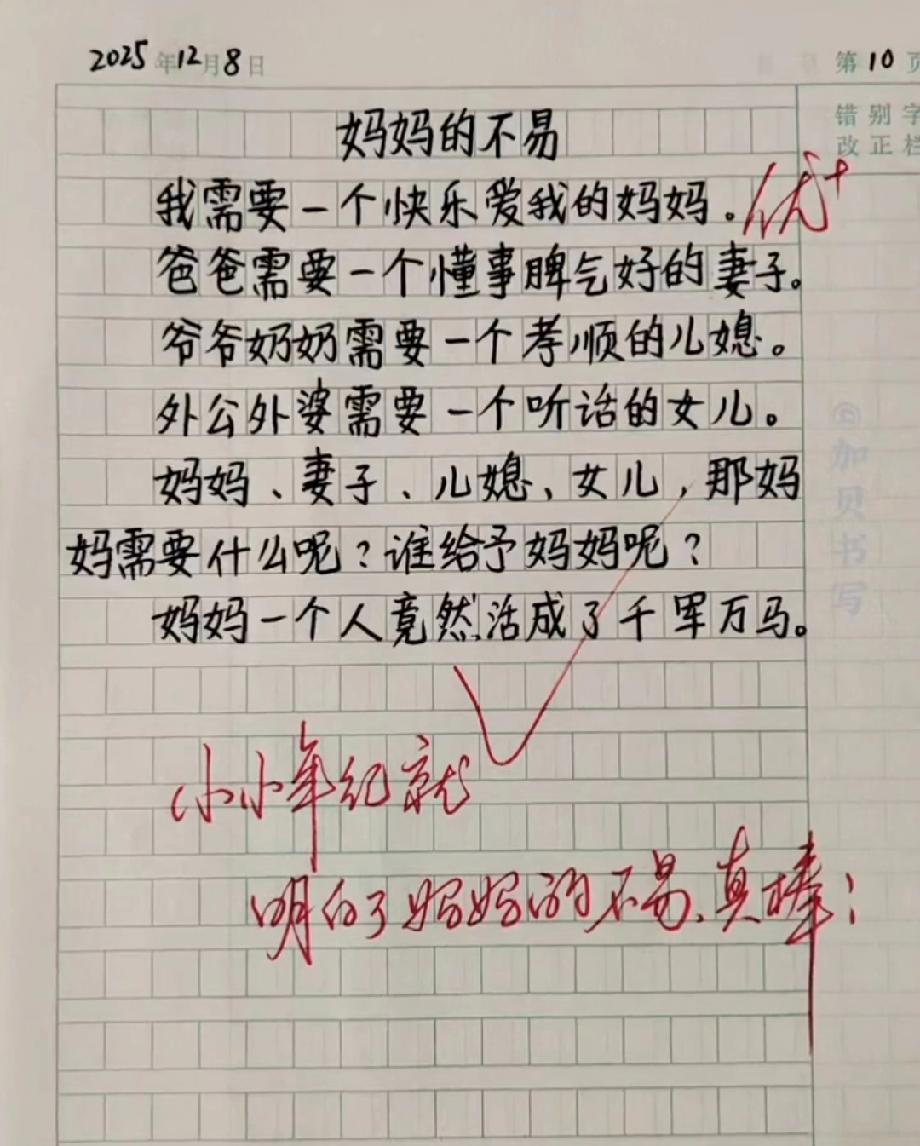 2025年12月8日
第10页
错别字
改正栏
妈妈的不易
我需要一个快乐爱我的妈妈.
优+
爸爸需要一个懂事脾气好的妻子。
爷爷奶奶需要一个孝顺的儿媳。
外公外婆需要一个听话的女儿。
妈妈、妻子、儿媳、女儿,那妈
妈需要什么呢?谁给予妈妈呢?
妈妈一个人竟然活成了千军万马。
小小年纪就
明白了妈妈的不易、真棒!
©加贝书写